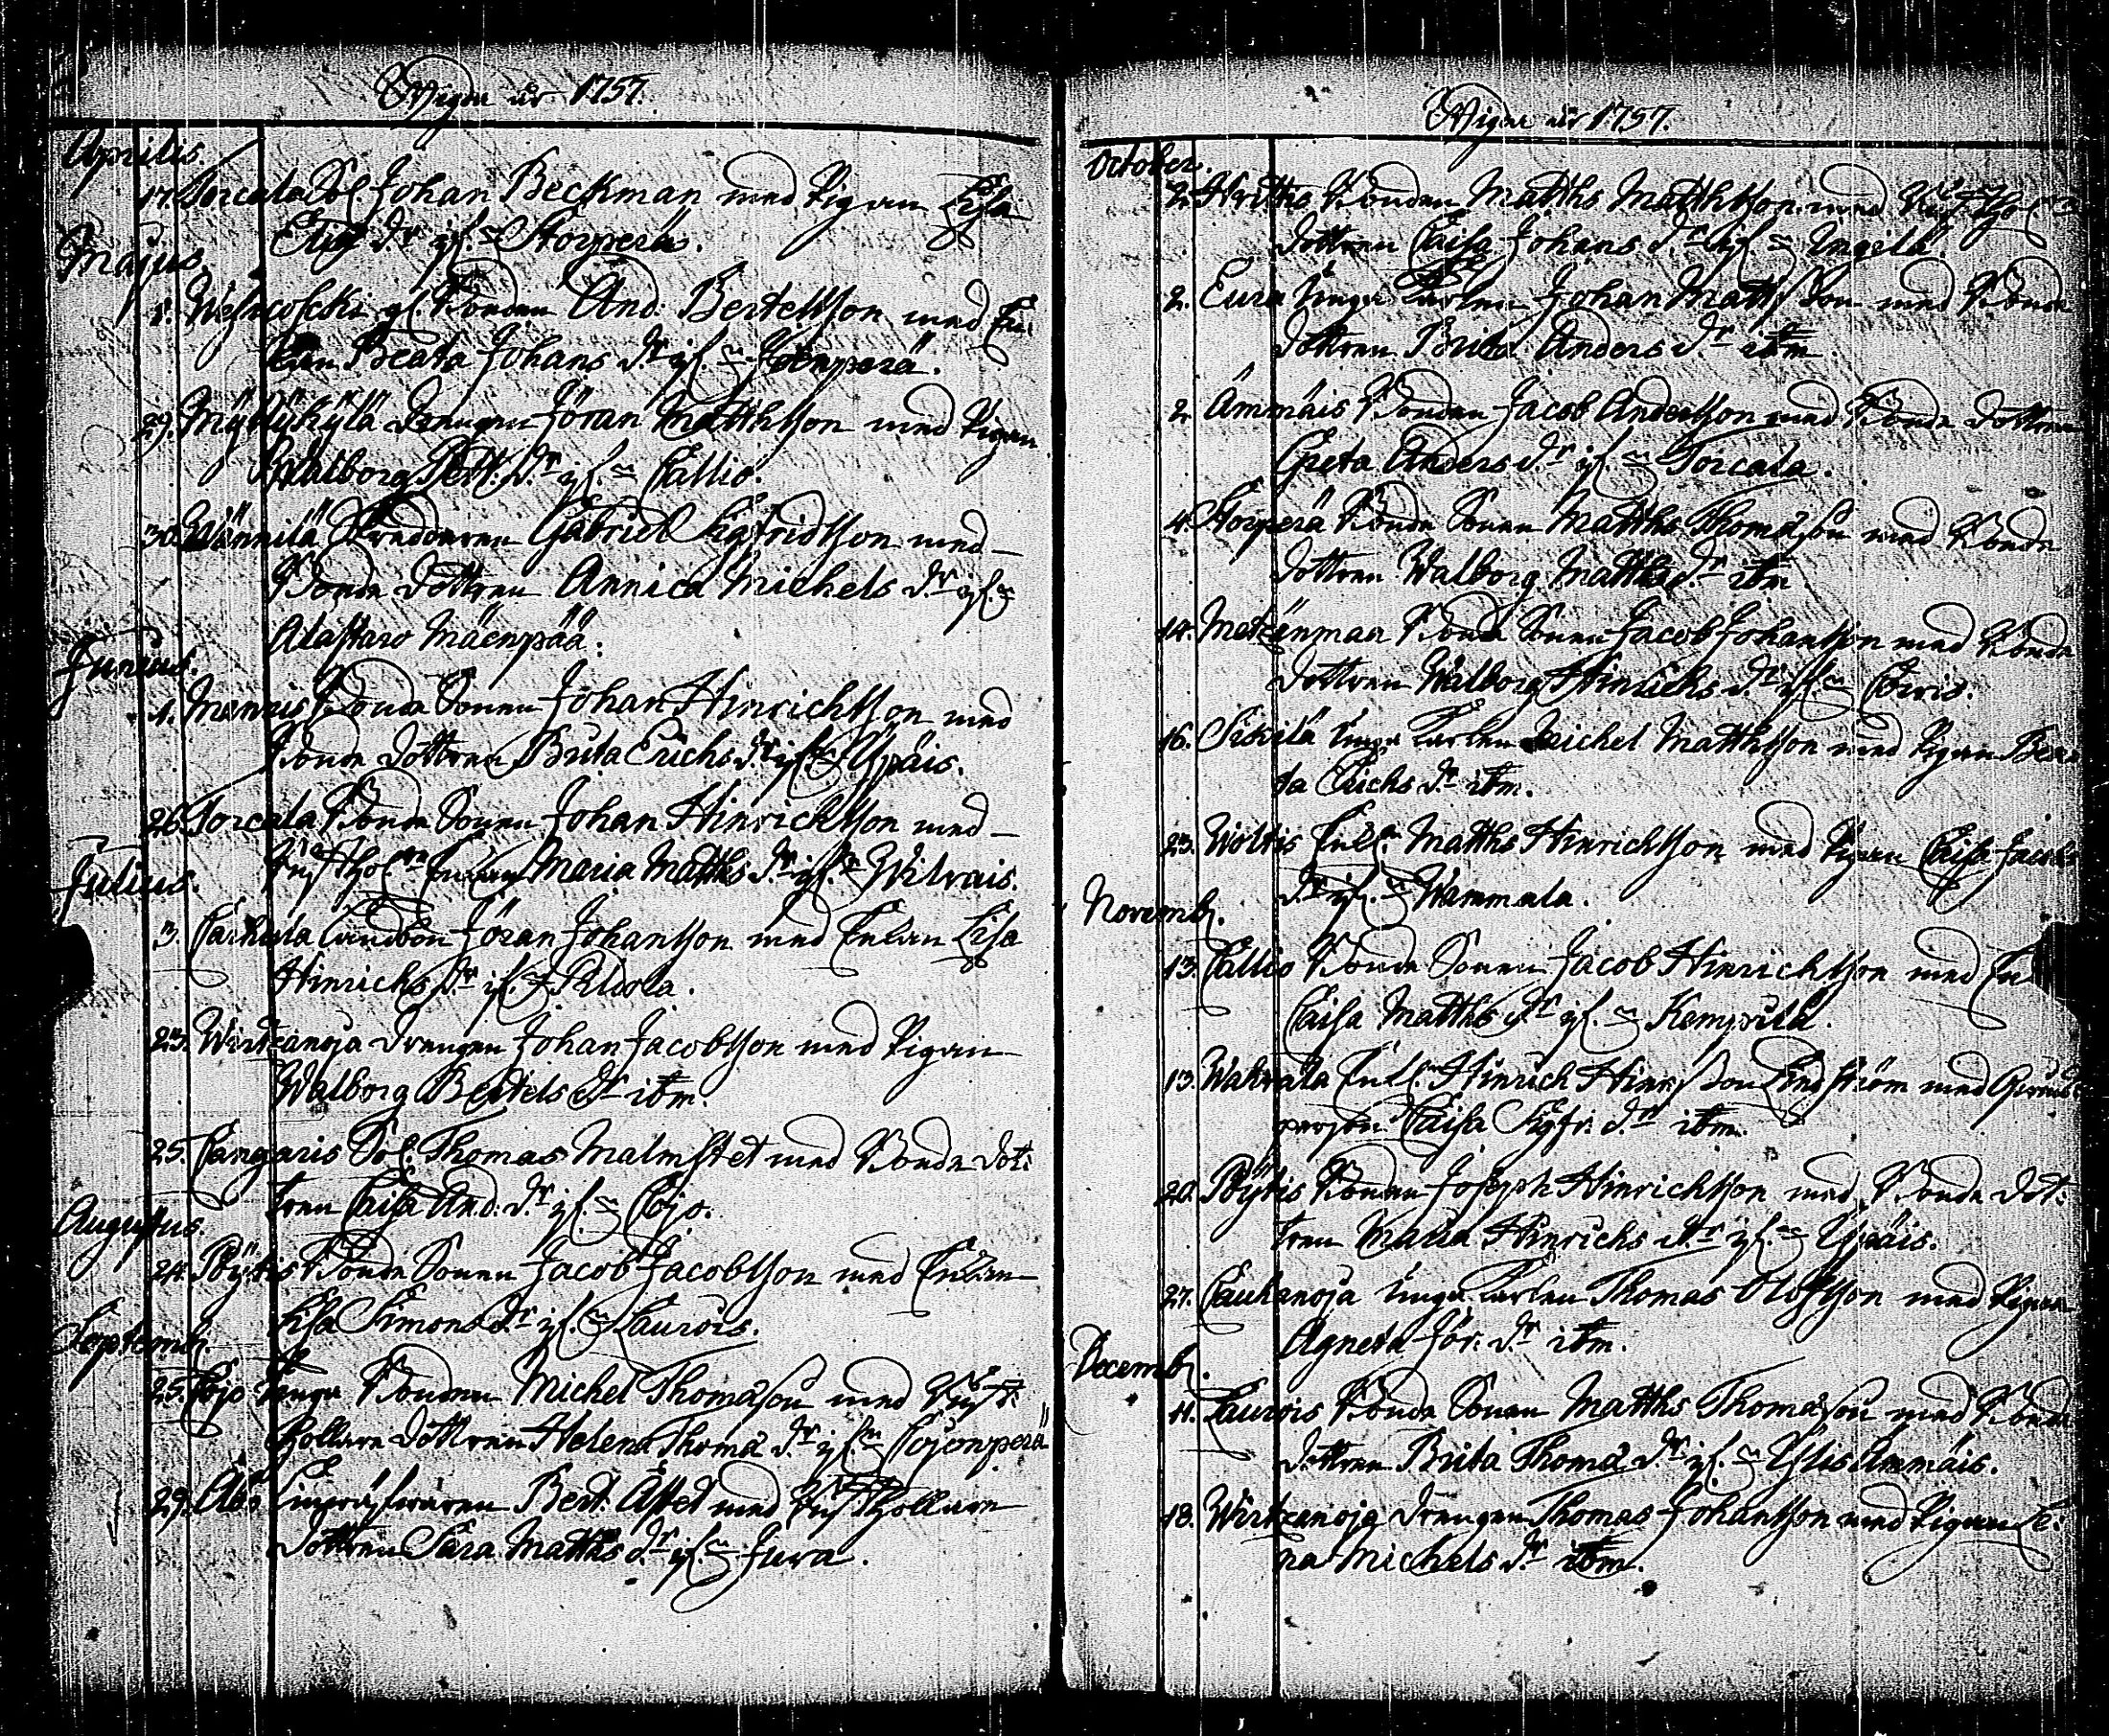 Wigde år 1757.
Aprilis.
17. Torcala Sol. Johan Beckman med Pigan Lisa
Eliæ dr if. Storperä.
Majus.
1. gl. Bonden And: Bertelsson med En-
kan Beata Johans dr if.
29. Myllykylä Drengen Jöran Matthsson med Pigan
Walborg Bert. dr if. Callio.
30. Wännilä Skreddaren Gabriel Sigfridsson med
Bonde dottren Annica Michels dr if.
Alastaro Mäenpää.
Junius.
1. Mennis Bonde Sonen Johan Hinrichsson med
Bonde dottren Brita Erichs dr if. Ypäis.
26. Torcala Bonde Sonen Johan Hinrichsson med
Rusth. Enkan Maria Matths dr if. Wilvais.
Julius.
3. Carhula Landbon Jöran Johansson med Enkan Lisa
Hinrichs dr if.
23. Wirtzanoja Drengen Johan Jacobsson med Pigan
Walborg Bertels dr itm.
25. Cangaris Sol. Thomas Malmstet med Bonde dot-
tren Caisa And: dr if. Cojo.
Augustus.
24. Pöytis Bonde Sonen Jacob Jacobsson med Enkan
Lisa Simons dr if. Laurois.
Septemb.
25. Cojo unga Bonden Michel Thomasson med Rust-
hollare dottren Helena Thomæ dr if. Cojonperä
29. Åbo Bert. Åstet med Rusthollare
dottren Sara Matths dr if. Juva.
Wigde år 1757.
October.
2. Heikkis Bonden Matths Matthsson med Rusthol.
dottren Caisa Johans dr if. Yngilä.
2. Eura unga Karlen Johan Matts Son med Bonde
dottren Brita Anders dr itm
2. Ämmäis Bonden Jacob Andersson med Bonde dottren
Greta Anders dr if. Torcala.
4. Storperä Bonde Sonen Matths Thomasson med Bonde
dottren Walborg Matths dr itm
14. Metzänmaa Bonde Sonen Jacob Johansson med Bonde
dottren Walborg Hinrichs dr if.
16. Sikilä unga Karlen Michel Matthsson med Pigan Bea-
ta Erichs dr itm.
23. Woltis Enkl. Matths Hinrichsson med Pigan Caisa Jacobs
dr if. Wammala.
Novemb.
13. Callio Bonde Sonen Jacob Hinrichsson med En
Caisa Matths dr if. Kempilä.
13. Wakwala Enkl. Hinrich Hinrs Son Lindström med Qvins
person Caisa Sigfr. dr itm.
20. Pöytis Bonden Joseph Hinrichsson med Bonde dot-
tren Maria Hinrichs dr if. Ypäis.
27. Cauhanoja unga Karlen Thomas Olofsson med Pigan
Agneta Jör. dr itm.
Decemb.
11. Laurois Bonde Sonen Matths Thomasson med Bonde
dottren Brita Thomæ dr if. Ylis Ämmäis.
18. Wirtzanoja Drengen Thomas Johansson med Pigan Le-
na Michels dr itm.